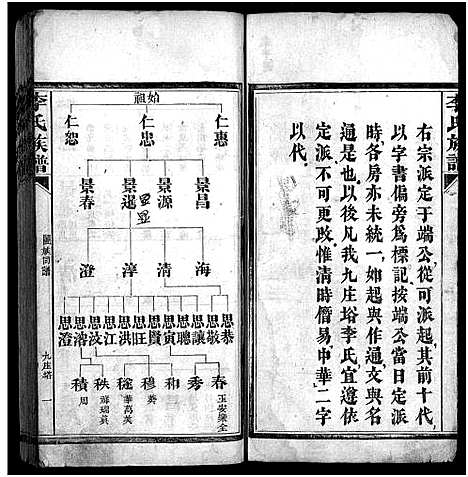 李氏族譜
右宗派定于端公從可派起其前十代
以字書偏旁爲標記按端公當日定派
時各房亦未統一如起與作通文與名
通是也以後凡我九庄塔李氏宜遵依
定派不可更改惟清時僭易中華二字
以代
李氏族譜
九庄塔
一
始祖
仁惠
仁忠
仁恕
景昌
景源
景暹
景春
海
清
淳
澄
思恭
思敬
思讓
思聰
思寅
思賢
思旺
思洪
思江
思汶
思濬
思澄
春
秀
和
穆
穜
秩
積